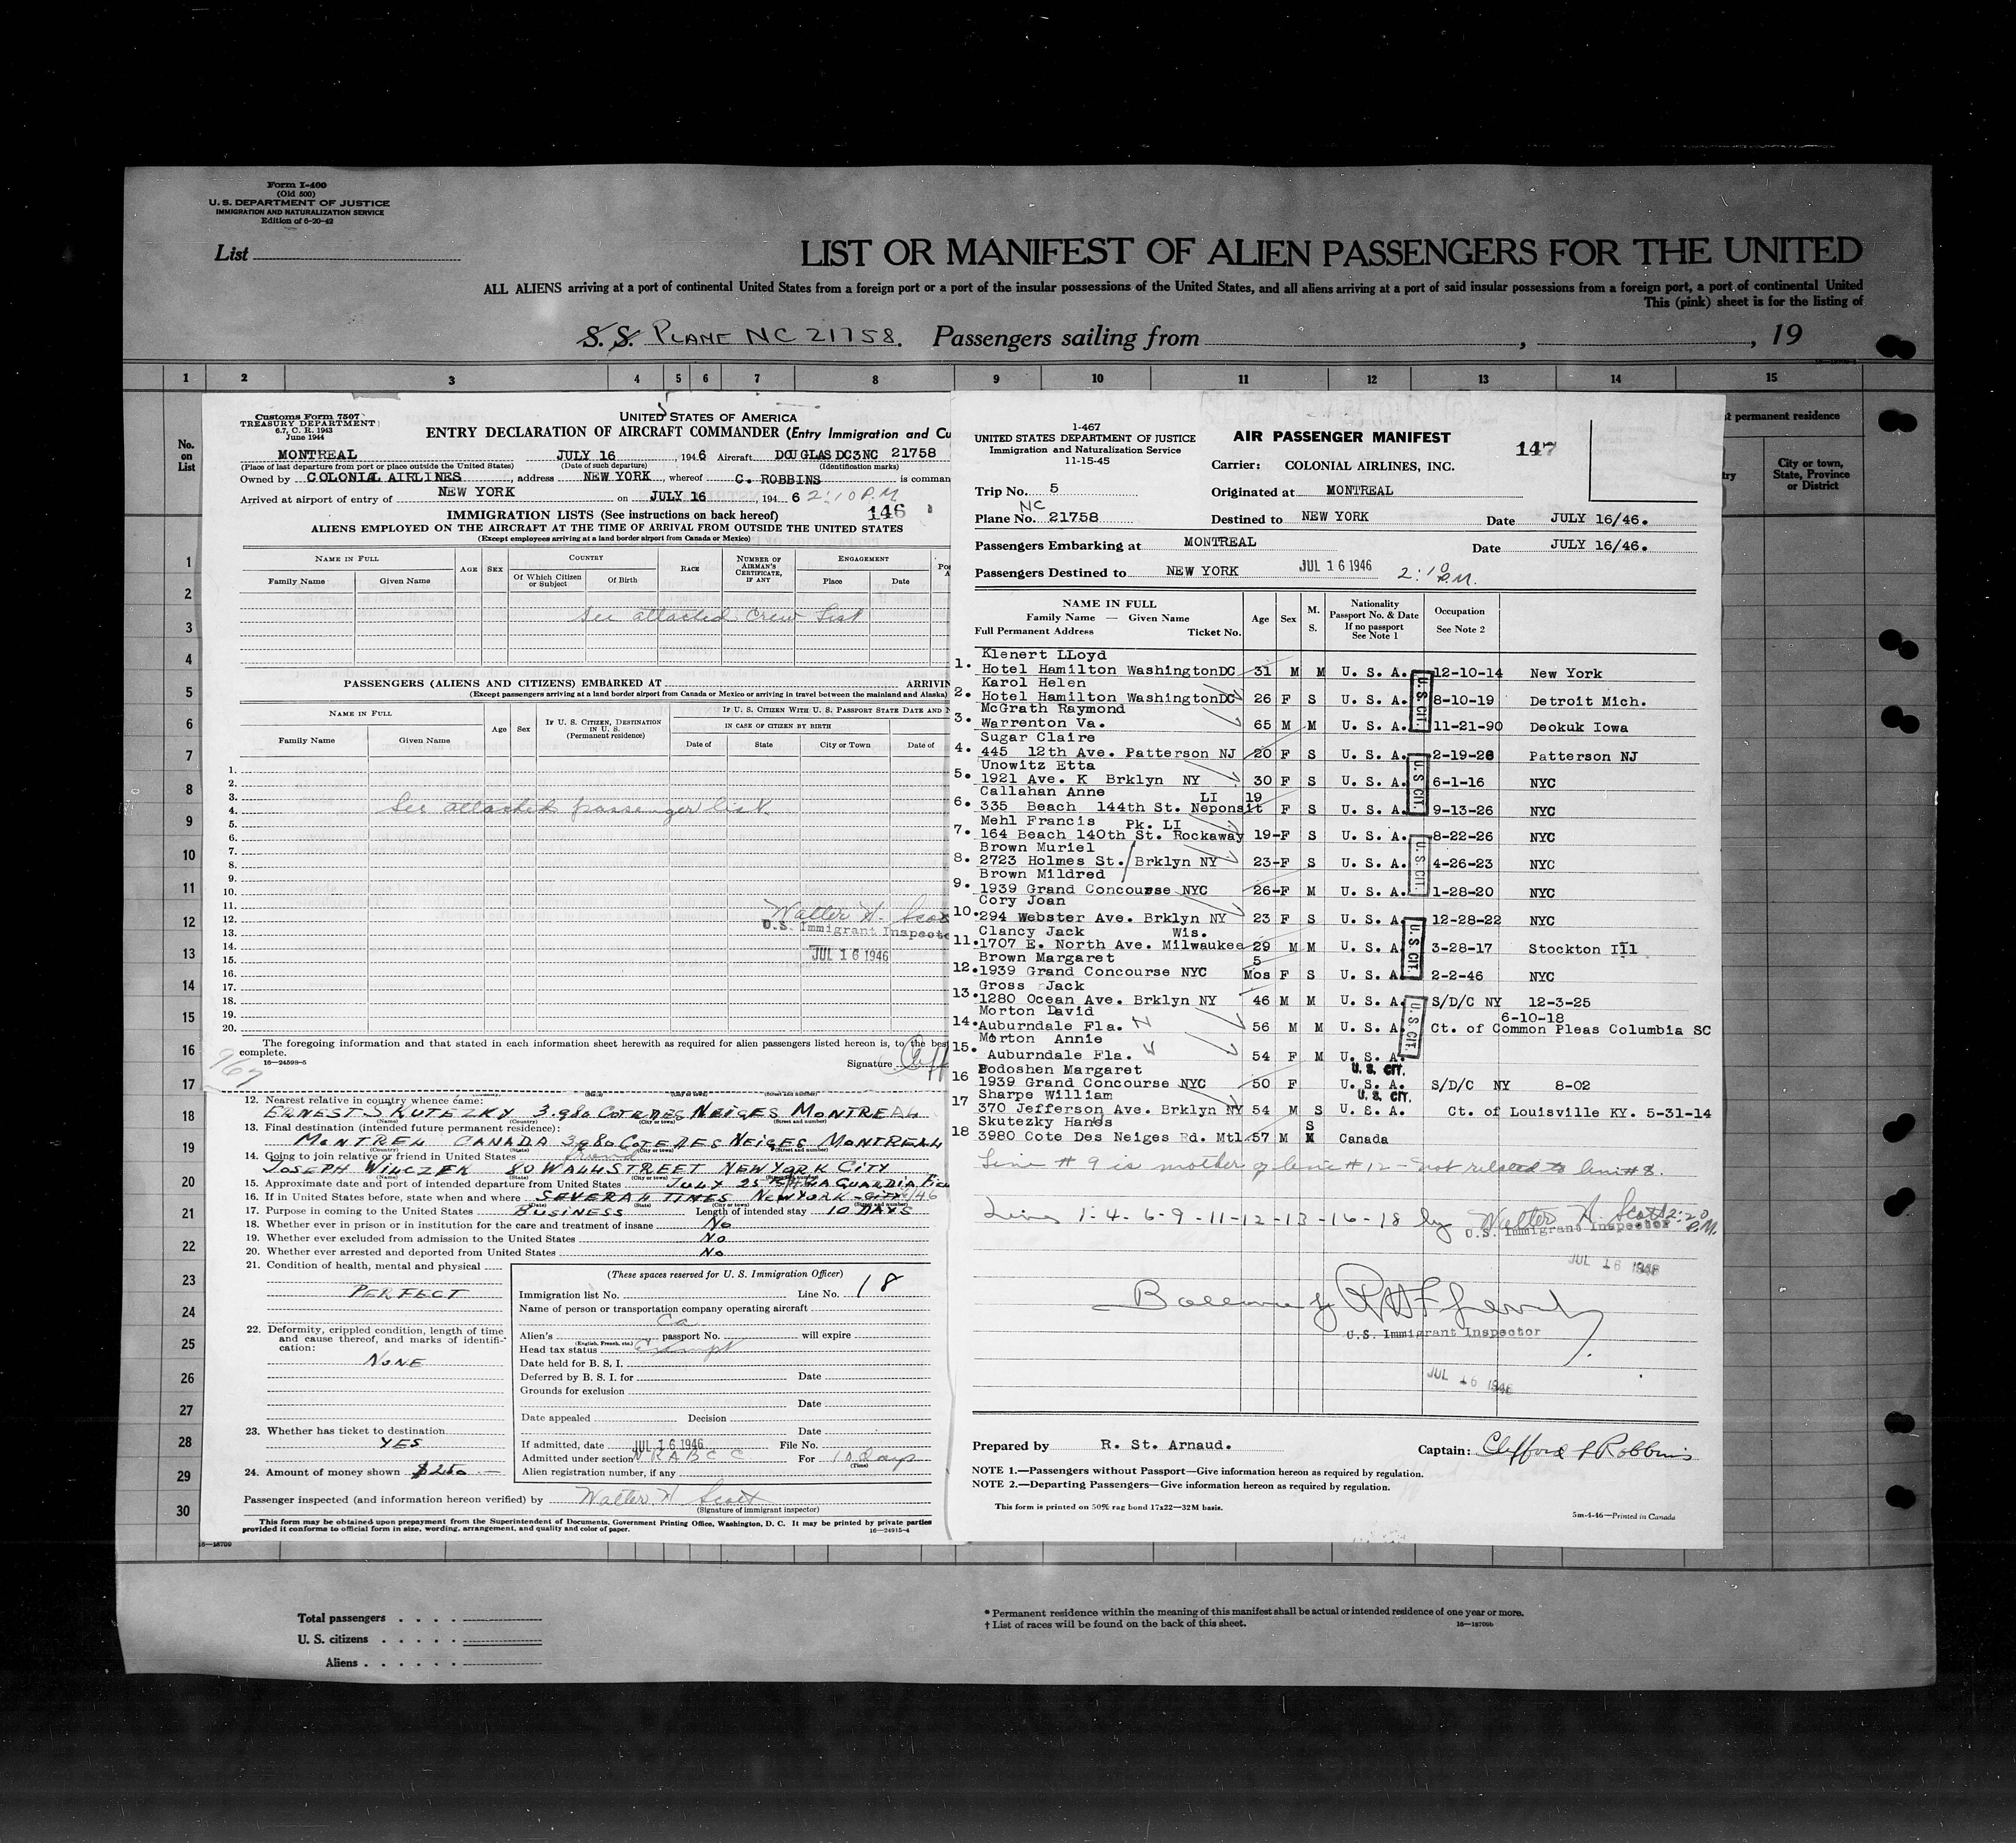 Form I-400
(Old 500)
U. S. DEPARTMENT OF JUSTICE
IMMIGRATION AND NATURALIZATION SERVICE
Edition of 6-20-42
List
LIST OR MANIFEST OF ALIEN PASSENGERS FOR THE UNITED
ALL ALIENS arriving at a port of continental United States from a foreign port or a port of the insular possessions of the United States, and all aliens arriving at a port of said insular possessions from a foreign port, a port of continental United
This (pink) sheet is for the listing of
S. S. PLANE NC 21758. Passengers sailing from , , 19
1 2 3 4 5 6 7 8 9 10 11 12 13 14 15
No. on List
permanent residence
City or town, State, Province or District
1
2
3
4
5
6
7
8
9
10
11
12
13
14
15
16
17
18
19
20
21
22
23
24
25
26
27
28
29
30
Customs Form 7507
TREASURY DEPARTMENT
6.7, C. R. 1943
June 1944
UNITED STATES OF AMERICA
ENTRY DECLARATION OF AIRCRAFT COMMANDER (Entry Immigration and Cu
MONTREAL JULY 16, 1946 Aircraft DOUGLAS DC3NC 21758
(Place of last departure from port or place outside the United States) (Date of such departure) (Identification marks)
Owned by COLONIAL AIRLINES, address NEW YORK, whereof C. ROBBINS is comman
Arrived at airport of entry of NEW YORK on JULY 16, 1946 2:10 P.M
IMMIGRATION LISTS (See instructions on back hereof) 146
ALIENS EMPLOYED ON THE AIRCRAFT AT THE TIME OF ARRIVAL FROM OUTSIDE THE UNITED STATES
(Except employees arriving at a land border airport from Canada or Mexico)
NAME IN FULL AGE SEX COUNTRY RACE NUMBER OF AIRMAN'S CERTIFICATE, IF ANY ENGAGEMENT
Family Name Given Name Of Which Citizen or Subject Of Birth Place Date
See attached Crew List
PASSENGERS (ALIENS AND CITIZENS) EMBARKED AT ARRIVIN
(Except passengers arriving at a land border airport from Canada or Mexico or arriving in travel between the mainland and Alaska)
NAME IN FULL Age Sex IF U. S. CITIZEN, DESTINATION IN U. S. (Permanent residence) IF U. S. CITIZEN WITH U. S. PASSPORT STATE DATE AND N
IN CASE OF CITIZEN BY BIRTH
Family Name Given Name Date of State City or Town Date of
1.
2.
3.
4. See attached passenger list.
5.
6.
7.
8.
9.
10.
11.
12. Walter H. Scot
U.S. Immigrant Inspecto
13.
14.
15. JUL 16 1946
16.
17.
18.
19.
20.
The foregoing information and that stated in each information sheet herewith as required for alien passengers listed hereon is, to the bes
complete.
16—24593-5
Signature
12. Nearest relative in country whence came:
ERNEST SKUTEZKY 3980 COTE DES NEIGES MONTREAL
(Name) (Country) (City or town) (Street and number)
13. Final destination (intended future permanent residence):
MONTREAL CANADA 3980 COTE DES NEIGES MONTREAL
(Country) (State) (City or town) (Street and number)
14. Going to join relative or friend in United States friend
JOSEPH WILCZEK 80 WALL STREET NEW YORK CITY
(Name) (State) (City or town) (Street and number)
15. Approximate date and port of intended departure from United States JULY 25 LA GUARDIA
16. If in United States before, state when and where SEVERAL TIMES NEW YORK CITY
(Date) (State) (City or town)
17. Purpose in coming to the United States BUSINESS Length of intended stay 10 DAYS
18. Whether ever in prison or in institution for the care and treatment of insane NO
19. Whether ever excluded from admission to the United States NO
20. Whether ever arrested and deported from United States NO
21. Condition of health, mental and physical
PERFECT
22. Deformity, crippled condition, length of time and cause thereof, and marks of identification:
NONE
23. Whether has ticket to destination
YES
24. Amount of money shown $250 —
(These spaces reserved for U. S. Immigration Officer)
Immigration list No. Line No. 18
Name of person or transportation company operating aircraft
Ca
Alien's passport No. will expire
(English, French, etc.)
Head tax status Exempt
Date held for B. S. I.
Deferred by B. S. I. for Date
Grounds for exclusion
Date
Date appealed Decision
Date
If admitted, date JUL 16 1946 File No.
Admitted under section For 10 days
(Time)
Alien registration number, if any
Passenger inspected (and information hereon verified) by Walter H Scott
(Signature of immigrant inspector)
This form may be obtained upon prepayment from the Superintendent of Documents, Government Printing Office, Washington, D. C. It may be printed by private parties
provided it conforms to official form in size, wording, arrangement, and quality and color of paper.
16—24915-4
16—18709
I-467
UNITED STATES DEPARTMENT OF JUSTICE
Immigration and Naturalization Service
11-15-45
AIR PASSENGER MANIFEST 147
Carrier: COLONIAL AIRLINES, INC.
Trip No. 5 Originated at MONTREAL
Plane No. NC 21758 Destined to NEW YORK Date JULY 16/46.
Passengers Embarking at MONTREAL Date JULY 16/46.
Passengers Destined to NEW YORK JUL 16 1946 2:10 P.M.
NAME IN FULL
Family Name — Given Name
Full Permanent Address Ticket No.
Age Sex M. S. Nationality Passport No. & Date If no passport See Note 1 Occupation See Note 2
Klenert LLoyd
1. Hotel Hamilton WashingtonDC 31 M M U. S. A. 12-10-14 New York
Karol Helen
2. Hotel Hamilton WashingtonDC 26 F S U. S. A. 8-10-19 Detroit Mich.
McGrath Raymond
3. Warrenton Va. 65 M M U. S. A. 11-21-90 Deokuk Iowa
Sugar Claire
4. 445 12th Ave. Patterson NJ 20 F S U. S. A. 2-19-26 Patterson NJ
Unowitz Etta
5. 1921 Ave. K Brklyn NY 30 F S U. S. A. 6-1-16 NYC
Callahan Anne
6. 335 Beach 144th St. Neponsit LI 19 F S U. S. A. 9-13-26 NYC
Mehl Francis
7. 164 Beach 140th St. Rockaway Pk. LI 19-F S U. S. A. 8-22-26 NYC
Brown Muriel
8. 2723 Holmes St. Brklyn NY 23-F S U. S. A. 4-26-23 NYC
Brown Mildred
9. 1939 Grand Concourse NYC 26-F M U. S. A. 1-28-20 NYC
Cory Joan
10. 294 Webster Ave. Brklyn NY 23 F S U. S. A. 12-28-22 NYC
Clancy Jack
11. 1707 E. North Ave. Milwaukee Wis. 29 M M U. S. A. 3-28-17 Stockton Ill
Brown Margaret
12. 1939 Grand Concourse NYC 5 Mos F S U. S. A. 2-2-46 NYC
Gross Jack
13. 1280 Ocean Ave. Brklyn NY 46 M M U. S. A. S/D/C NY 12-3-25
Morton David
14. Auburndale Fla. 56 M M U. S. A. 6-10-18 Ct. of Common Pleas Columbia SC
Morton Annie
15. Auburndale Fla. 54 F M U. S. A.
U. S. CIT.
Podoshen Margaret
16 1939 Grand Concourse NYC 50 F U. S. A. S/D/C NY 8-02
U. S. CIT.
Sharpe William
17 370 Jefferson Ave. Brklyn NY 54 M S U. S. A. Ct. of Louisville KY. 5-31-14
Skutezky Hans
18 3980 Cote Des Neiges Rd. Mtl 57 M S Canada
U.S. CIT.
U.S. CIT.
U.S. CIT.
U.S. CIT.
U.S. CIT.
Line # 9 is mother of line # 12 - not related to line # 8.
Lines 1-4-6-9-11-12-13-16-18 by Walter H. Scott 2:20 P.M.
U.S. Immigrant Inspector
JUL 16 1946
Balance by
U.S. Immigrant Inspector
JUL 16 1946
Prepared by R. St. Arnaud. Captain: Clifford L Robbins
NOTE 1.—Passengers without Passport—Give information hereon as required by regulation.
NOTE 2.—Departing Passengers—Give information hereon as required by regulation.
This form is printed on 50% rag bond 17x22—32M basis.
5m-4-46—Printed in Canada
Total passengers
U. S. citizens
Aliens
* Permanent residence within the meaning of this manifest shall be actual or intended residence of one year or more.
† List of races will be found on the back of this sheet.
16—18709b